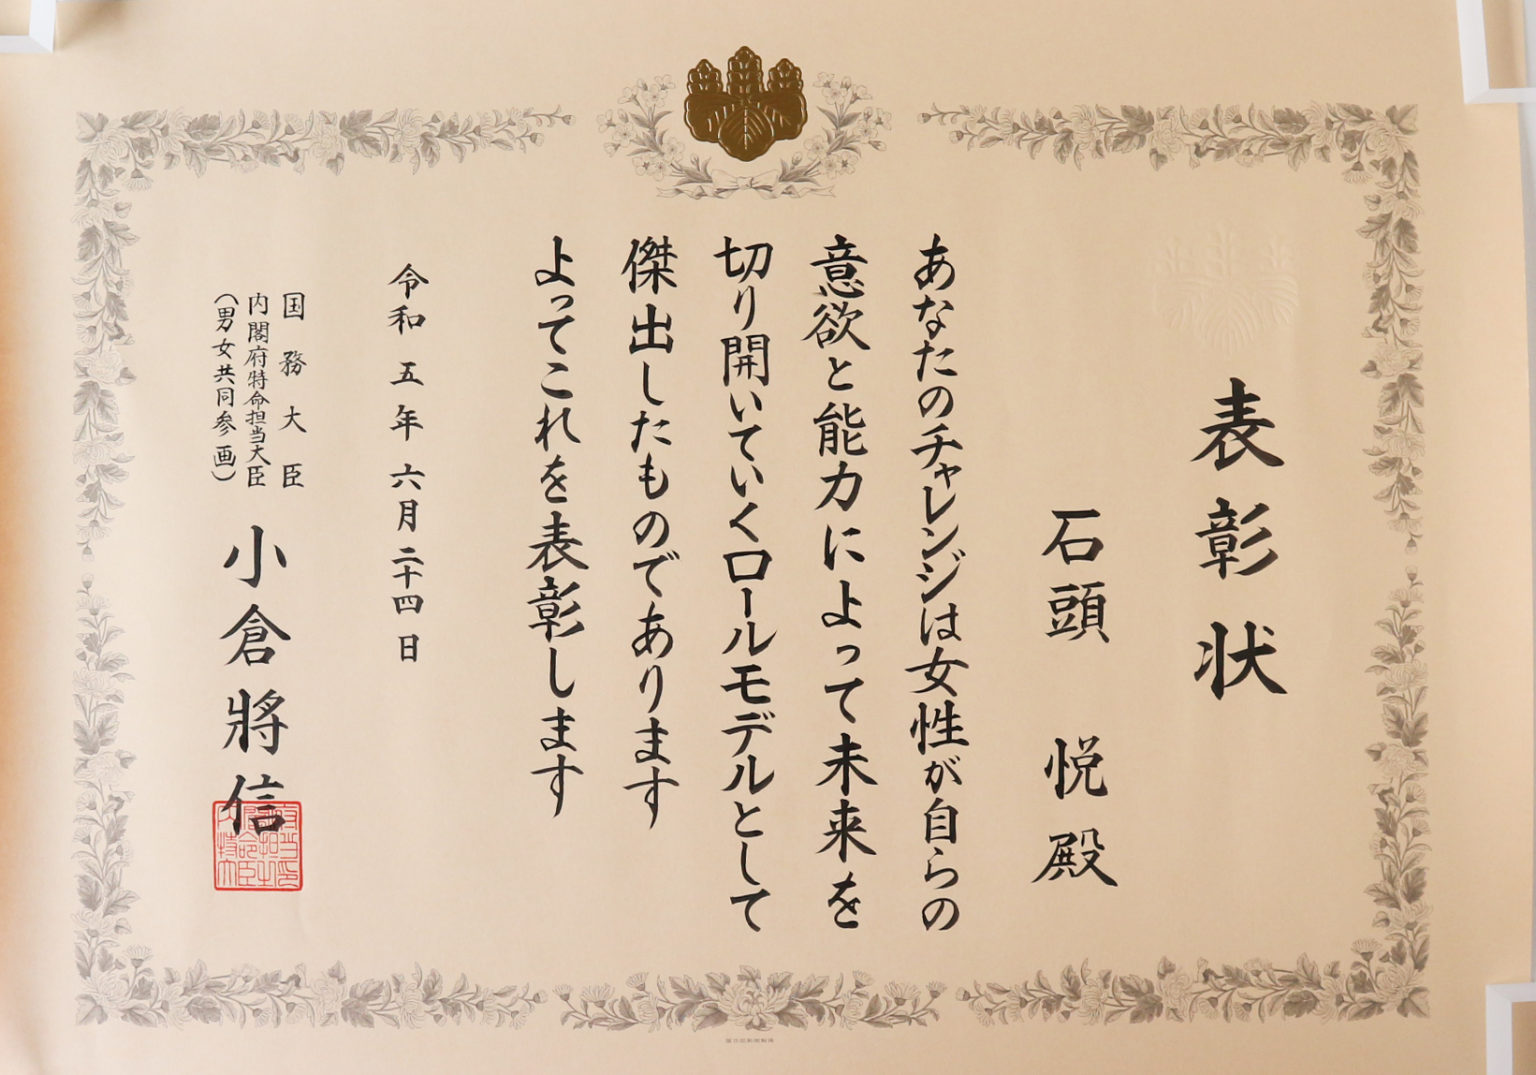 表彰状
石頭 悦殿
あなたのチャレンジは女性が自らの
意欲と能力によって未来を
切り開いていくロールモデルとして
傑出したものであります
よってこれを表彰します
令和五年六月二十四日
国務大臣
内閣府特命担当大臣
（男女共同参画）
小倉將信